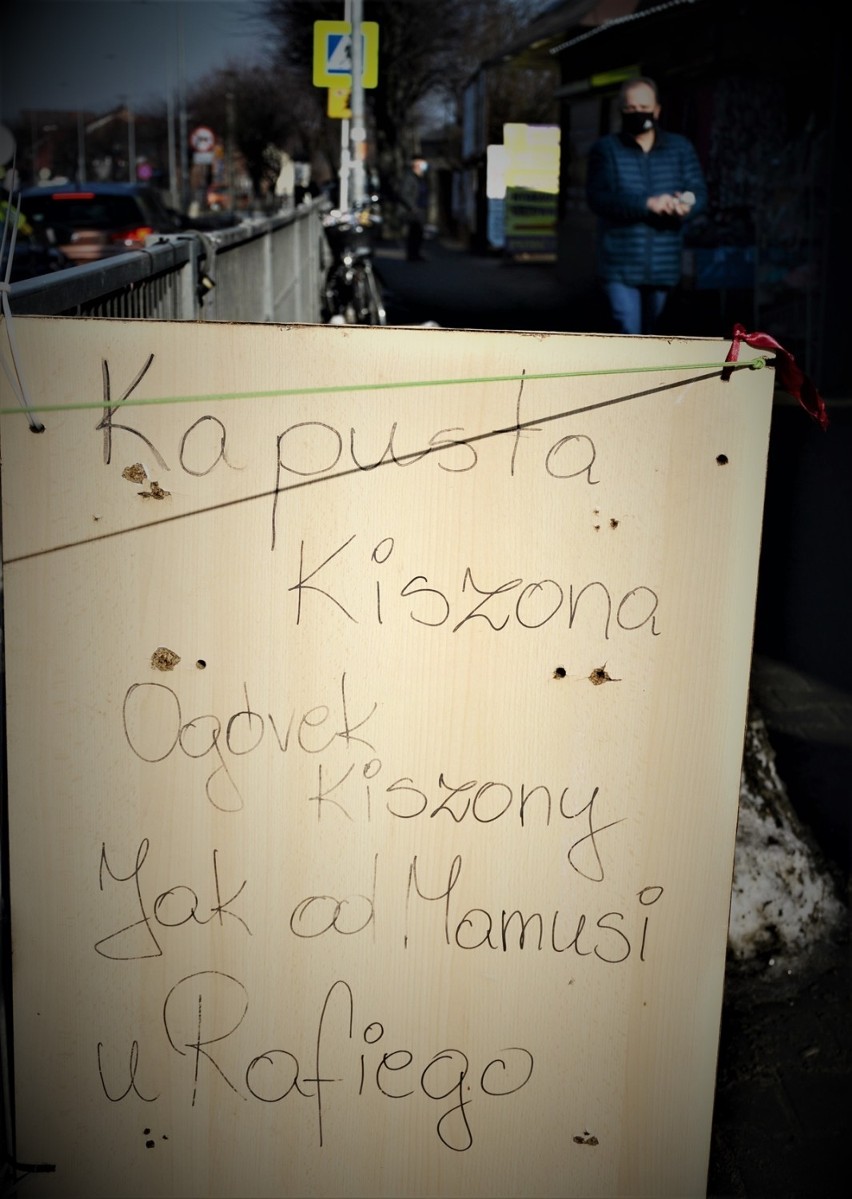 Kapusta
Kiszona
Ogóvek
Kiszony
Jak od Mamusi
u Rafiego